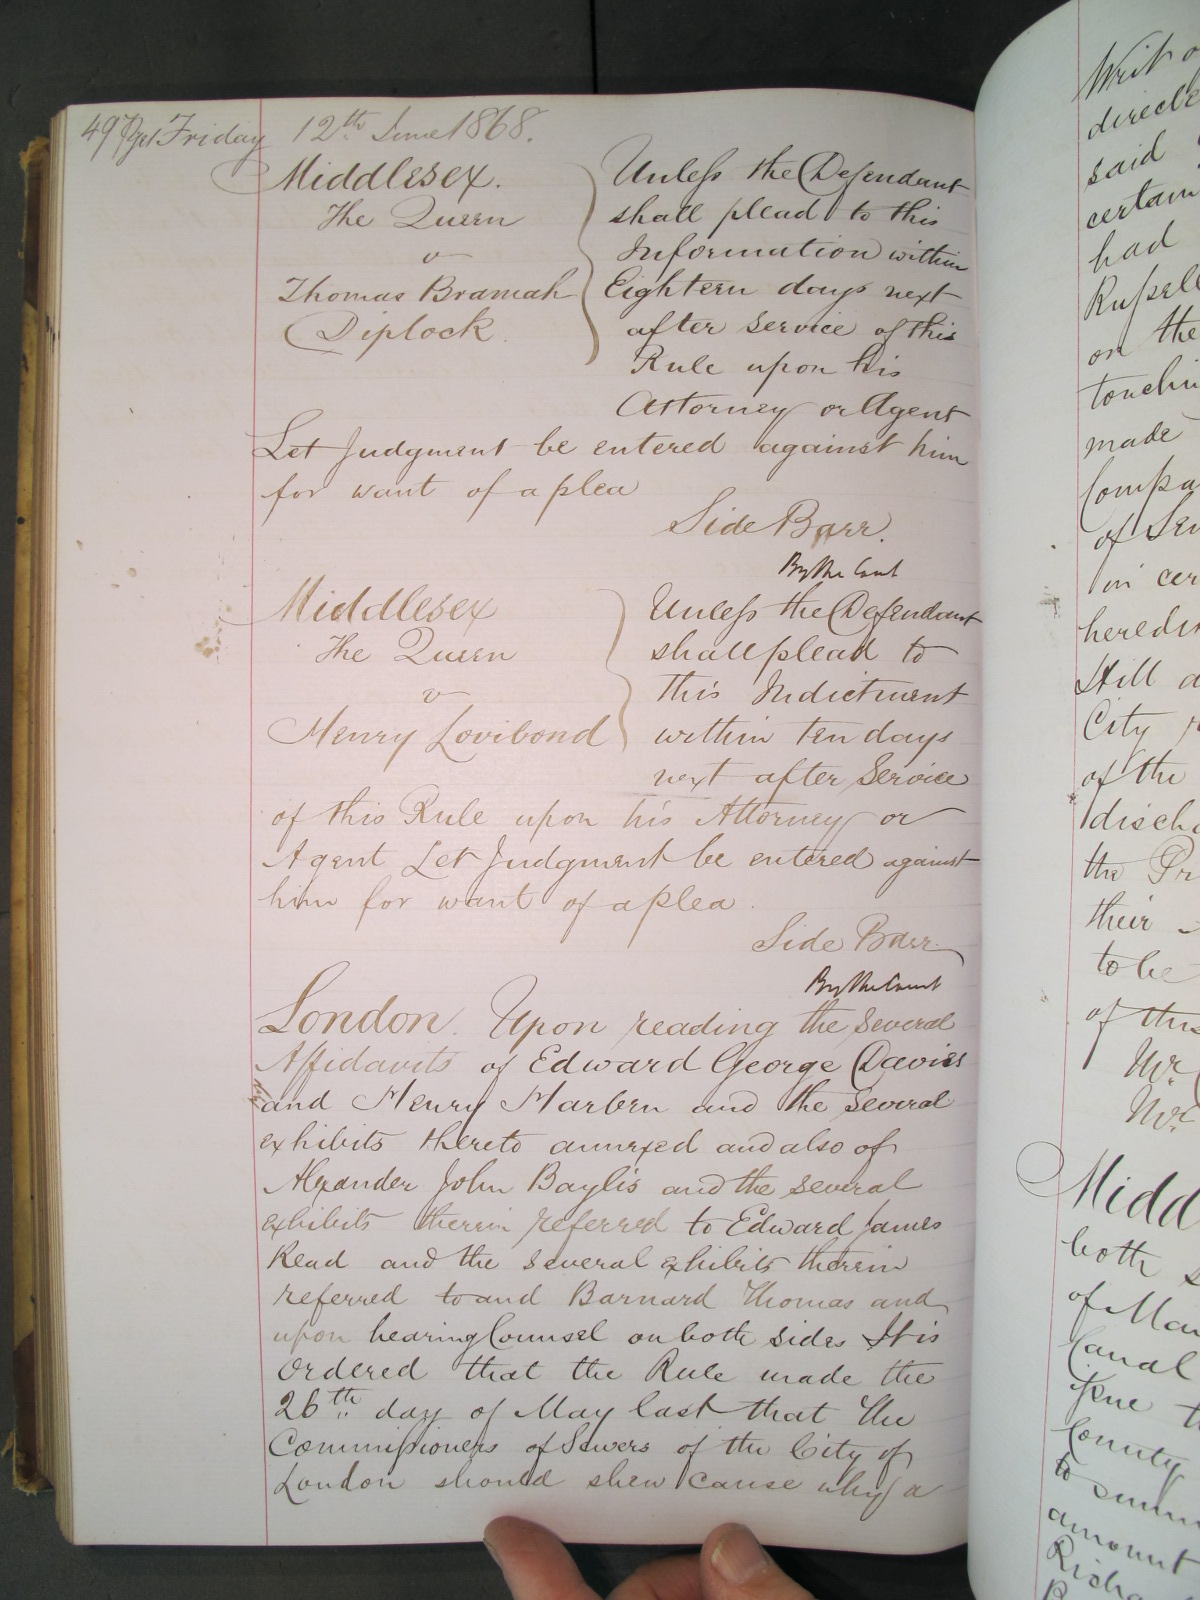 Friday 12th June 1868.
Middlesex.
The Queen
v
Thomas Bramah
Diplock
Unless the Defendant
shall plead to this
Information within
Eighteen days next
after service of this
Rule upon his
Attorney or Agent
Let Judgment be entered against him
for want of a plea
Side Barr.
By the Court
Middlesex
The Queen
v
Henry Lovibond
Unless the Defendant
shall plead to
this Indictment
within ten days
next after Service
of this Rule upon his Attorney or
Agent Let Judgment be entered against
him for want of a plea.
Side Barr.
By the Court
London. Upon reading the several
Affidavits of Edward George Davies
and Henry Harben and the several
exhibits thereto annexed and also of
Alexander John Baylis and the several
exhibits therein referred to Edward James
Read and the several exhibits therein
referred to and Barnard Thomas and
upon hearing Counsel on both sides It is
Ordered that the Rule made the
26th day of May last that the
Commissioners of Sewers of the City of
London should shew cause why a
Writ o
directe
said
certain
had
Russell
on the
touchin
made
Compa
of Sew
in cer
heredit
Still a
City
of the
discha
the Pr
their
to be
of this
Mr.
Mr.
Midd
both
of Man
Canal
Fine
County
to summ
amount
Richa